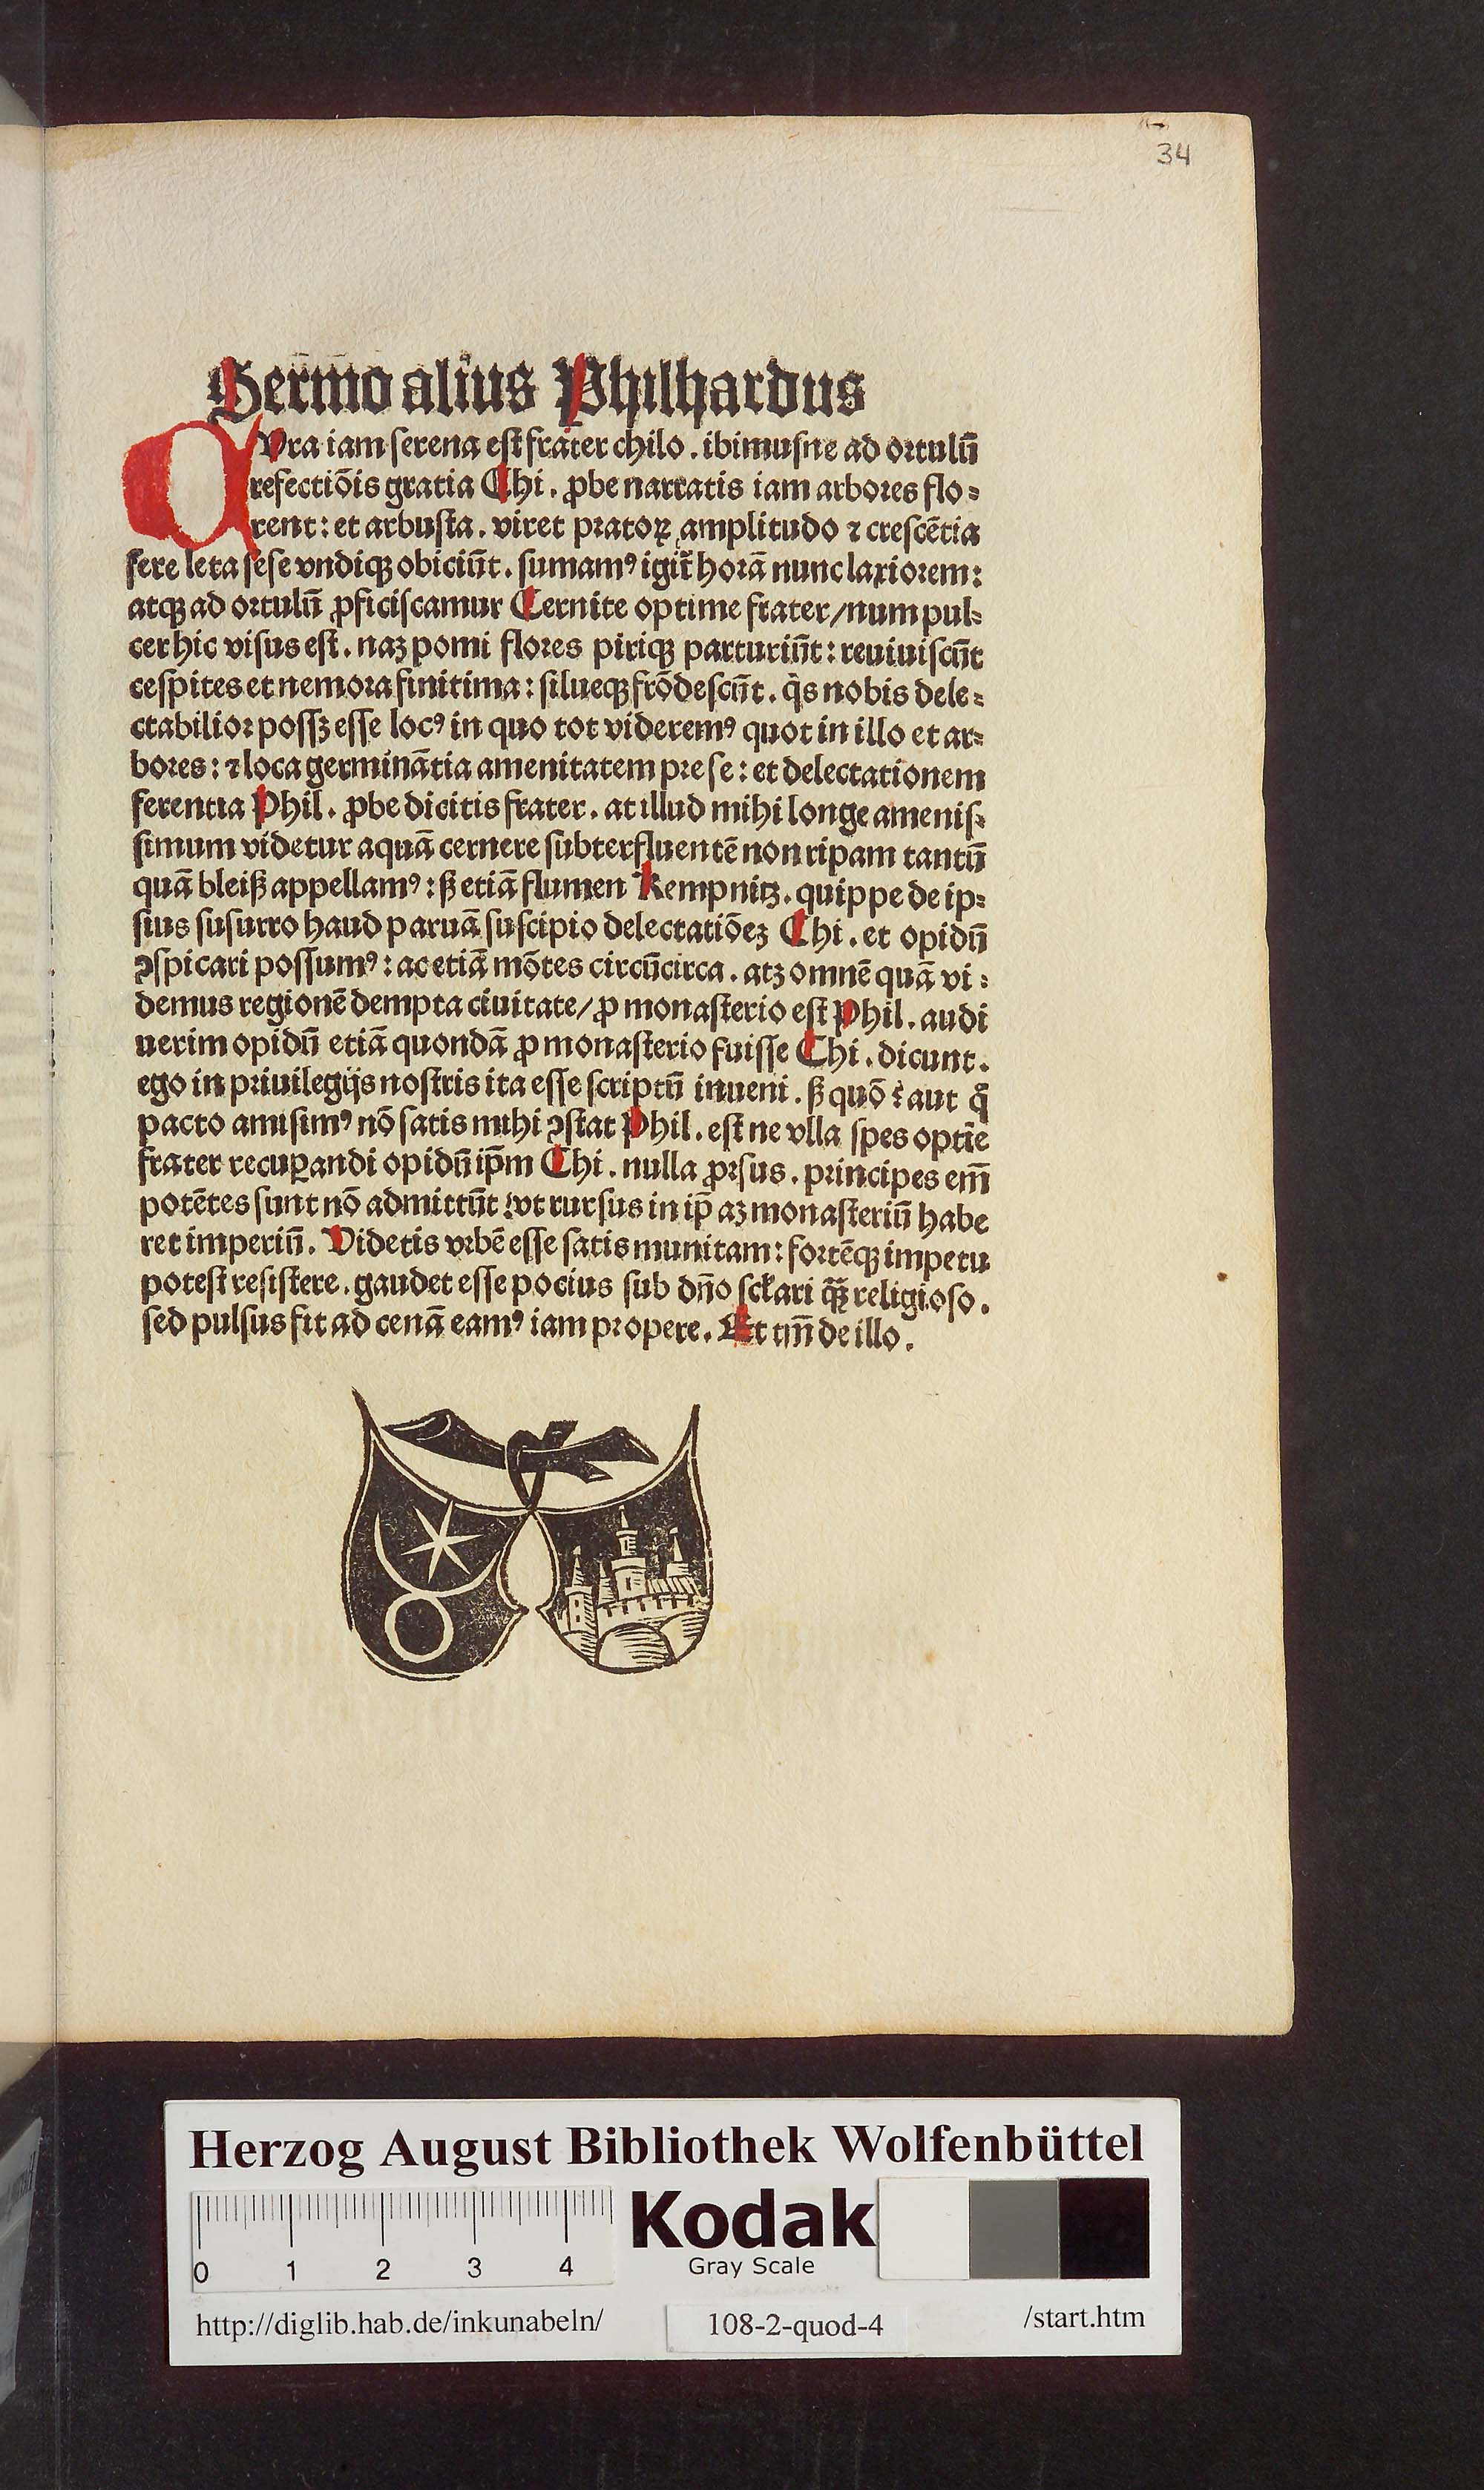 34
Sermo alius Philhardus
AVra iam serena est frater chilo. ibimusne ad ortulū
refectiōis gratia Chi. ꝓbe narratis iam arbores flo⸗
rent: et arbusta. viret pratoꝝ amplitudo ⁊ crescētia
fere leta sese vndiqꝫ obiciūt. sumamꝰ igit̄ horā nunc laxiorem:
atqꝫ ad ortulū ꝓficiscamur Cernite optime frater/num pul⸗
cer hic visus est. naꝫ pomi flores piriqꝫ parturiūt: reuiuiscūt
cespites et nemora finitima: silueqꝫ frōdescūt. q̇s nobis dele⸗
ctabilior possꝫ esse locꝰ in quo tot videremꝰ quot in illo et ar⸗
bores: ⁊ loca germināntia amenitatem pre se: et delectationem
ferentia Phil. ꝓbe dicitis frater. at illud mihi longe amenis⸗
simum videtur aquā cernere subterfluentē non ripam tantū
quā bleiß appellamꝰ: ß etiā flumen Kempnitz. quippe de ip⸗
sius susurro haud paruā suscipio delectatiōeꝫ Chi. et opidū
ꝯspicari possumꝰ: ac etiā mōtes circūcirca. atꝫ omnē quā vi⸗
demus regionē dempta ciuitate/ ꝓ monasterio est Phil. audi
uerim opidū etiā quondā ꝓ monasterio fuisse Chi. dicunt.
ego in priuilegijs nostris ita esse scriptū inueni. ß quō aut q̊
pacto amisimꝰ nō satis mihi ꝯstat Phil. est ne vlla spes optīe
frater recuꝑandi opidū ip̄m Chi. nulla ꝓrsus. principes em̄
potētes sunt nō admittūt vt rursus in ip̄aꝫ monasteriū habe
ret imperiū. Videtis vrbē esse satis munitam: fortēqꝫ impetu
potest resistere. gaudet esse pocius sub dn̄o sctari q̄ꝫ religioso.
sed pulsus fit ad cenā eamꝰ iam propere. Et tm̄ de illo.
Herzog August Bibliothek Wolfenbüttel
0 1 2 3 4
Kodak
Gray Scale
http://diglib.hab.de/inkunabeln/ 108-2-quod-4 /start.htm